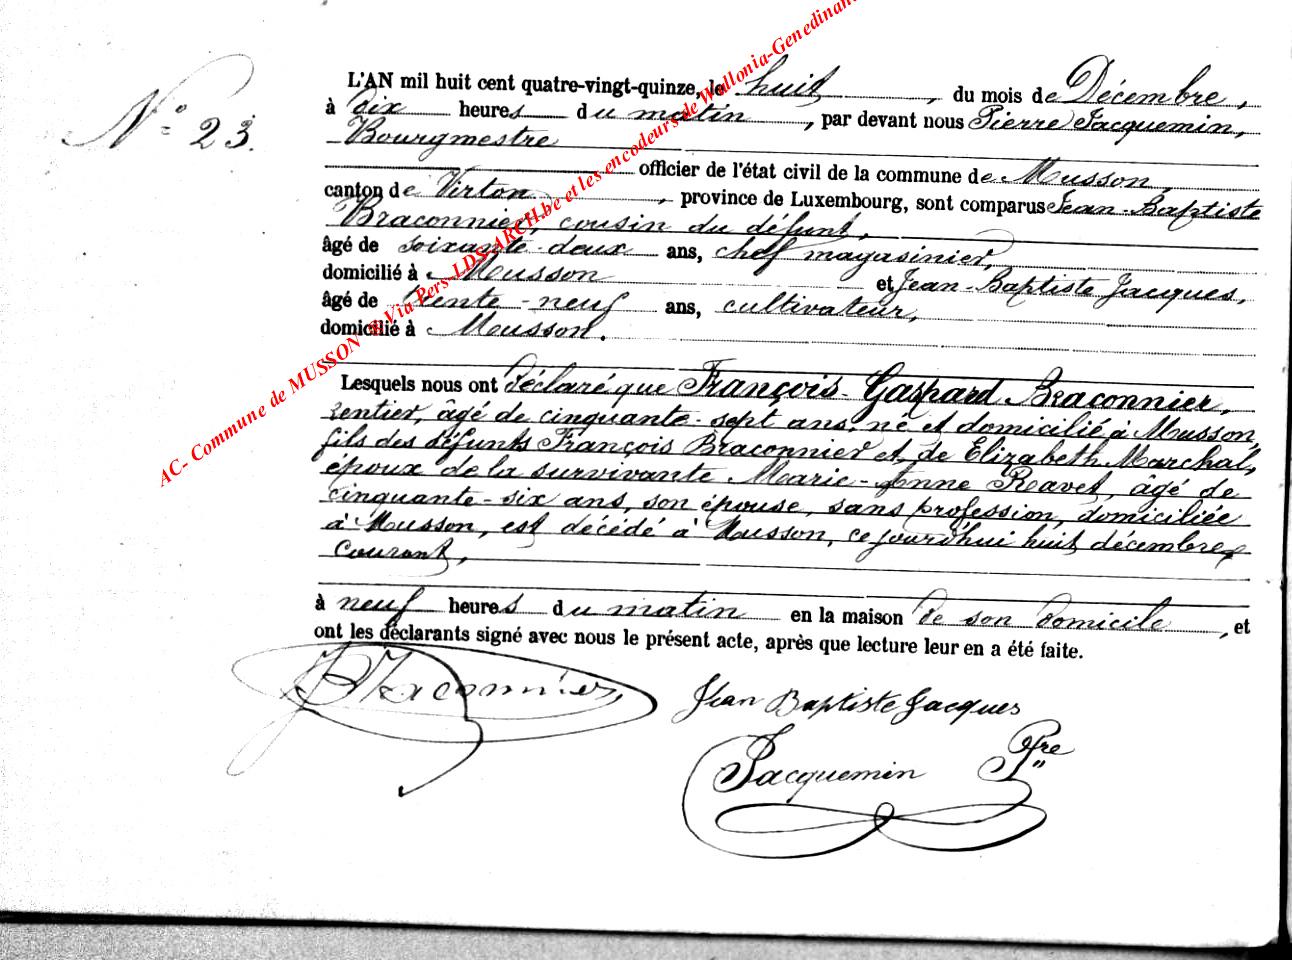 N° 23.
L'AN mil huit cent quatre-vingt-quinze, le huit, du mois de Décembre,
à dix heures du matin, par devant nous Pierre Jacquemin,
Bourgmestre
officier de l'état civil de la commune de Musson,
canton de Virton, province de Luxembourg, sont comparus Jean-Baptiste
Braconnier, cousin du défunt,
âgé de soixante-deux ans, chef magasinier,
domicilié à Musson et Jean-Baptiste Jacques,
âgé de trente-neuf ans, cultivateur,
domicilié à Musson.
Lesquels nous ont déclaré que François-Gaspard Braconnier,
rentier, âgé de cinquante-sept ans, né et domicilié à Musson,
fils des défunts François Braconnier et de Elizabeth Marchal,
époux de la survivante Marie-Anne Ravet, âgé de
cinquante-six ans, son épouse, sans profession, domiciliée
à Musson, est décédé à Musson, ce jourd'hui huit décembre
courant,
à neuf heures du matin en la maison de son domicile, et
ont les déclarants signé avec nous le présent acte, après que lecture leur en a été faite.
JBraconnier
Jean Baptiste Jacques
Jacquemin Pre
AC- Commune de MUSSON @ Via Pers-LDS-ARCH.be et les encodeurs de Wallonia-Genedinant